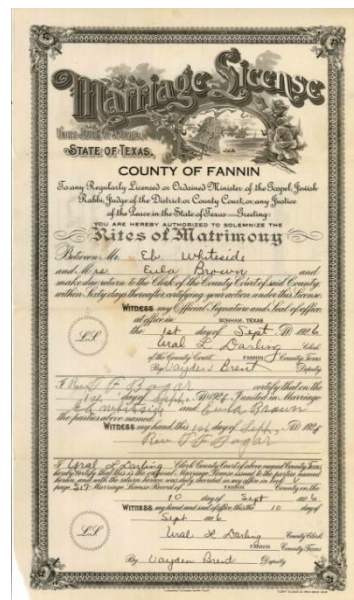 Marriage License
United States of America
STATE OF TEXAS.
COUNTY OF FANNIN
To any Regularly Licensed or Ordained Minister of the Gospel, Jewish
Rabbi, Judge of the District or County Court, or any Justice
of the Peace in the State of Texas—Greeting:
YOU ARE HEREBY AUTHORIZED TO SOLEMNIZE THE
Rites of Matrimony
Between Mr. Eb Whiteside
and Mrs Eula Brown and
make due return to the Clerk of the County Court of said County
within Sixty days thereafter, certifying your action under this License.
WITNESS my Official Signature and Seal of office
at office in BONHAM, TEXAS
the 1st day of Sept 1926
Ural L Darling Clerk
of the County Court FANNIN County, Texas
By Vayden Brent Deputy
L S
I Rev certify that on the
1st day of Sept 192 I united in Marriage
Eb Whiteside and Eula Brown
the parties above named
WITNESS my hand, this 1st day of Sept 192
Rev
I Ural L Darling Clerk County Court of above named County, Texas,
page 517 Marriage Record FANNIN County, on the
10 day of Sept 6
WITNESS my hand and seal of office, this the 10 day of
Sept 1926
L S
Ural L Darling County Clerk
FANNIN County, Texas
By Vayden Brent Deputy